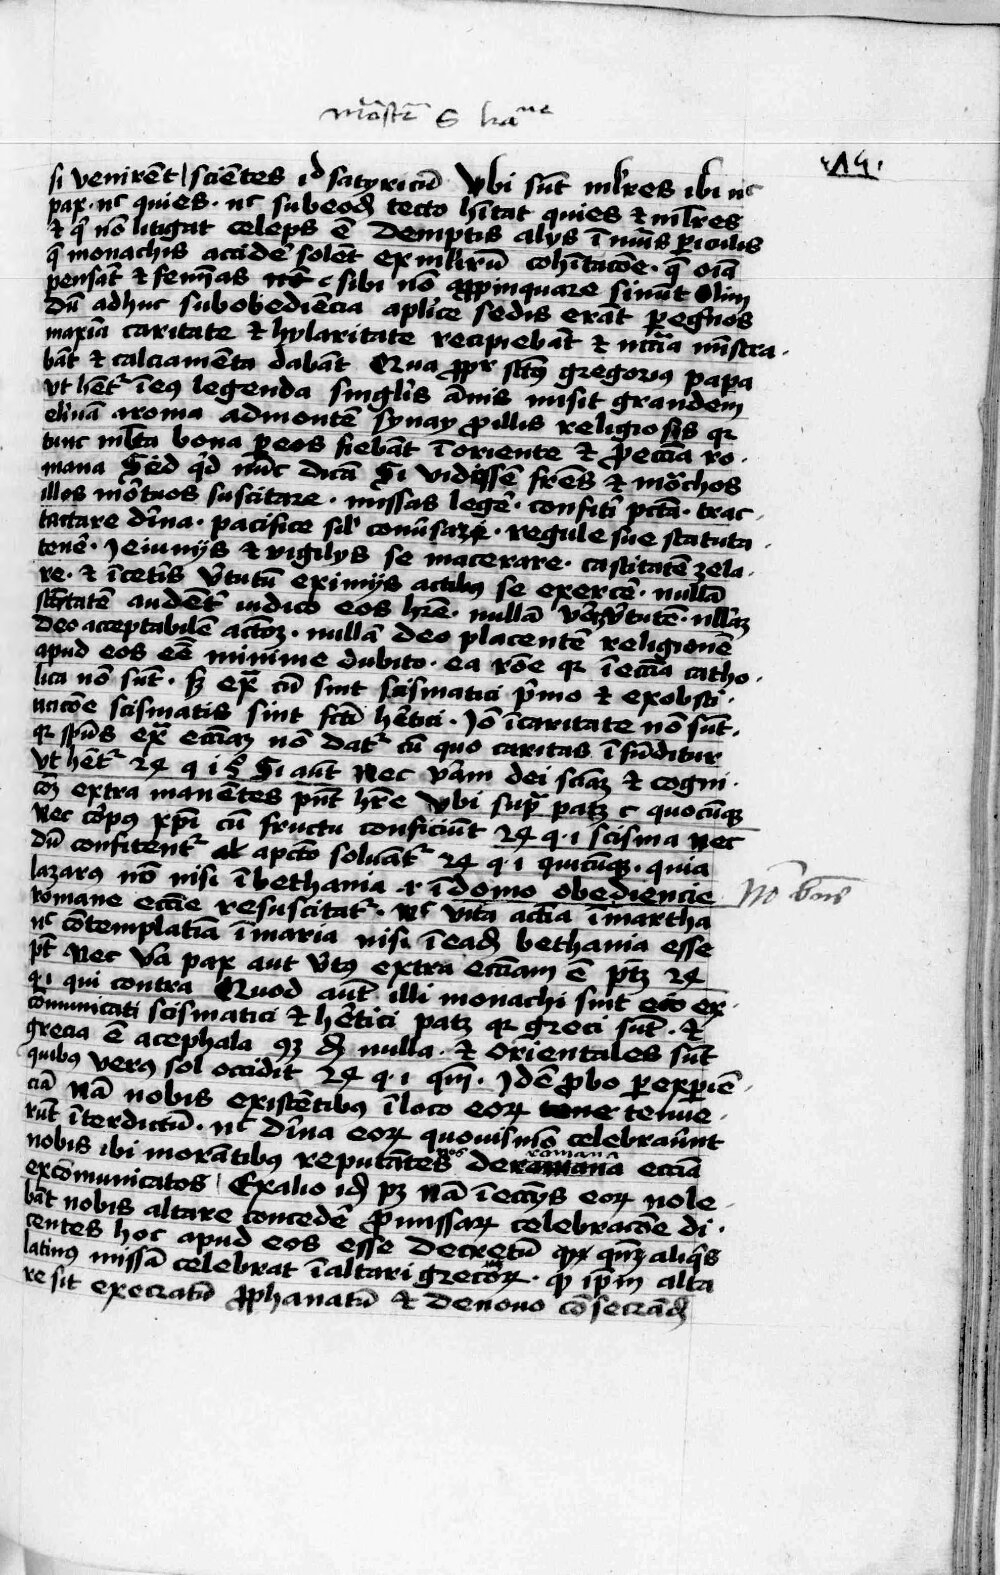 si venirēt | sciētes id satyricū Vbi sūt mlres ibi nc
pax · nc quies · nc sub eodē tecto hītat quies & mlres
& q nō litigat celeps ē Demptis alijs ī nūis piculis
q monachis accidē solēt ex mlierū cohītacōe · q oīa
pensāt & femīas sibi nō ppinquare sinūt Olim
Dū adhuc sub obediēcia aplice sedis erāt pegnos
maxīa caritate & hylaritate recipiebāt & nccīa mīstra
bāt & calciamēta dabāt Qua ppr sctus gregorius papa
vt hēt r ī eius legenda singlis ānis misit grandem
elinā a roma ad montē synay p illis religiosis qr
tunc mlta bona p eos fiebāt ī oriente & p ecciā ro ·
mana Sed qd nūc dicā Si vidissē frēs & mōchos
illos mortuos suscitare · missas legē · confiti pctā · trac ·
tare dīna · pacifice sil conūsari · regule sue statuta ·
tenē · Jeiunijs & vigilijs se macerare · castitatē zela ·
re · & ī cetis vtutū eximijs actibus se exercē · nullā
sctitatē audent iudico eos hrē · nullā vtutē · nllā
Deo acceptabilē actōȝ · nullā deo placentē religionē
apud eos eē minime dubito · ea rōe qr ī ecciā catho ·
lica nō sūt · sȝ ex cū sint scismatici pmo & ex obsti ·
nacōe scismatis sint fcti hetici · Jō ī caritate nō sūt ·
qr spūs ex ecciaȝ nō datr cū quo caritas ī fūditur
vt hētr 24 q i § Si aūt Nec vām dei sciaȝ & cogni ·
cōȝ extra manētes pnt hrē vbi supra patȝ c quocūqȝ
Nec corpus xpi cū fructu conficiūt 24 q · i scisma Nec
dū confitentr a pctō soluātr 24 q · i quicūqȝ · quia
lazarus nō nisi ī bethania i ī domo obediencie
romane eccie resuscitatr · Nc vita actīa ī martha
nc cōtemplatīa ī maria nisi ī eadē bethania esse
pt Nec va pax aut vtus extra ecciam ē ptȝ 24
q · i qui contra Quod aūt illi monachi sint ex ·
cōmunicati scismatici & hetici patȝ qr greci sūt · &
grecia ē acephala nulla · & orientales sūt
quibus verus sol occidit 24 q · i qm · Jdē pbo p expiē ·
ciā Nā nobis existētibus ī loco eorȝ tenue ·
rūt īterdictū · nc dīna eorȝ quouismō celebraūnt
nobis ibi morātibus reputātes nos de romana ecciā
excōmunicatos | Ex alio id pȝ Nā ī ecciys eorȝ nole ·
bāt nobis altare concedē p missarȝ celebracōe di ·
centes hoc apud eos esse decretū qm aliqs
latinus missā celebrat ī altari grecorȝ · qd ipm alta
re sit execratū pphanatū & denouo cōsecrādū